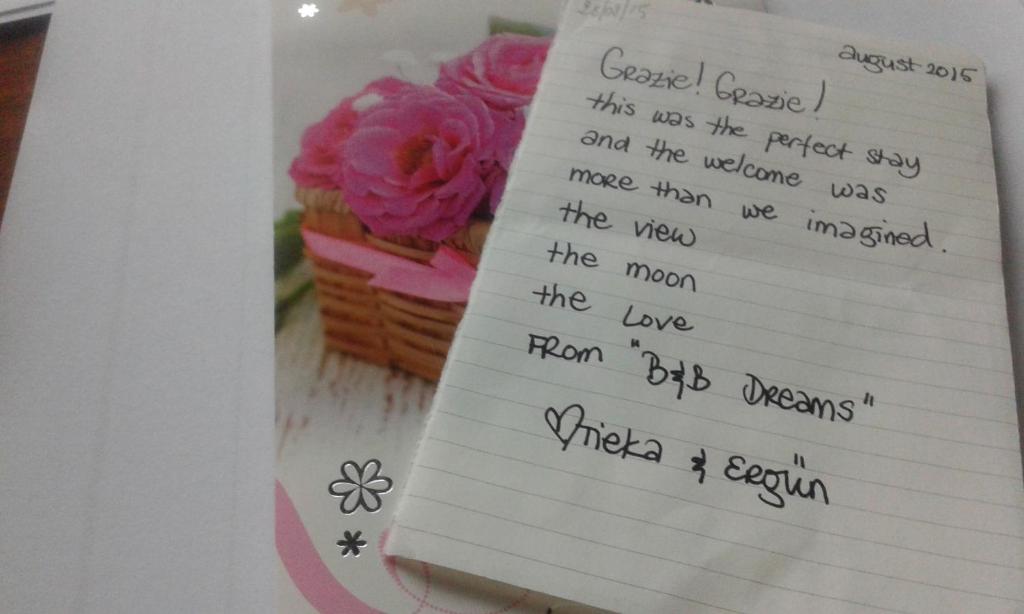 august 2015
Grazie! Grazie!
this was the perfect stay
and the welcome was
more than we imagined.
the view
the moon
the Love
From "B&B Dreams"
♡Tieka & Ergün